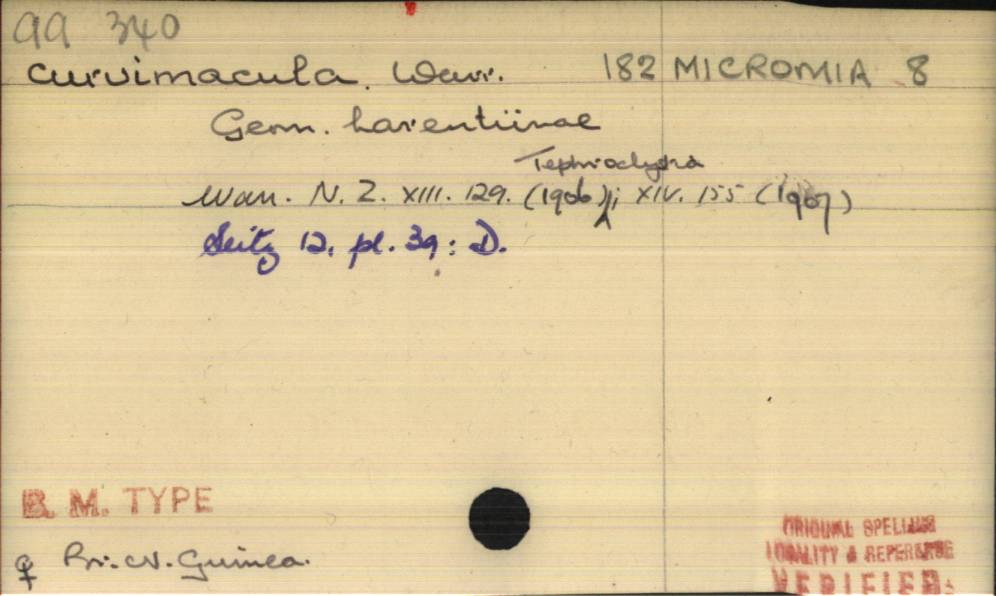 99 340
curvimacula. Warr. 182 MICROMIA 8
Geom. Larentiinae
Tephroclystia
Warr. N. Z. XIII. 129. (1906); XIV. 155 (1907)
Seitz 12. pl. 39 : D.
B. M. TYPE
♀ Br. N. Guinea.
ORIGINAL SPELLING
LOCALITY & REFERENCE
VERIFIED